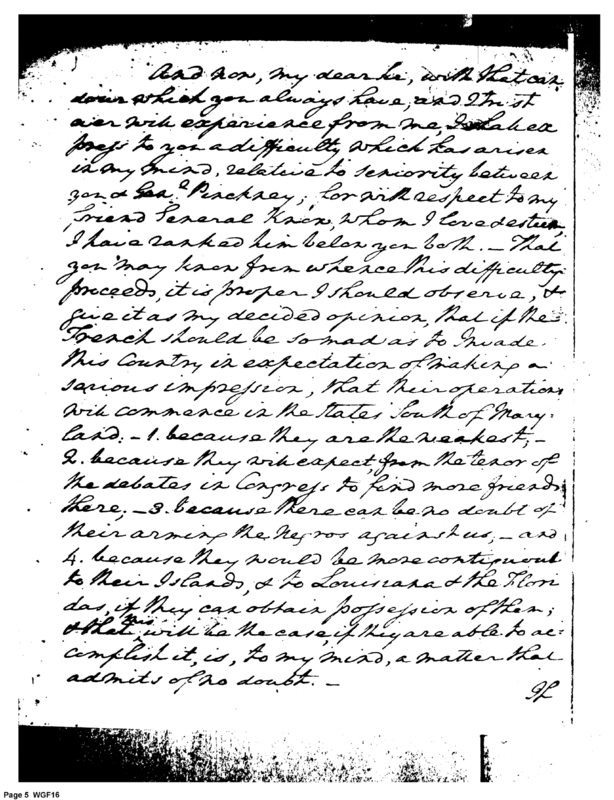 And now, my dear Sir, with that can
dour which you always have, and I trust
ever will experience from me, I shall ex
press to you a difficulty which has arisen
in my mind, relative to seniority between
you & Genl. Pinckney; for with respect to my
friend General Knox, whom I love & esteem,
I have ranked him below you both. – That
you may know from whence this difficulty
proceeds, it is proper I should observe, &
give it as my decided opinion, that if the
French should be so mad as to Invade
this Country in expectation of making a
serious impression, that their operations
will commence in the States South of Mary-
land: – 1. because they are the weakest; –
2. because they will expect, from the tenor of
the debates in Congress to find more friends
there; – 3. because there can be no doubt of
their arming the Negros against us; – and
4. because they would be more contiguous
to their Islands, & to Louisiana & the Flori
das, if they can obtain possession of them;
& that this will be the case, if they are able to ac-
complish it, is, to my mind, a matter that
admits of no doubt. –
If
Page 5 WGF16